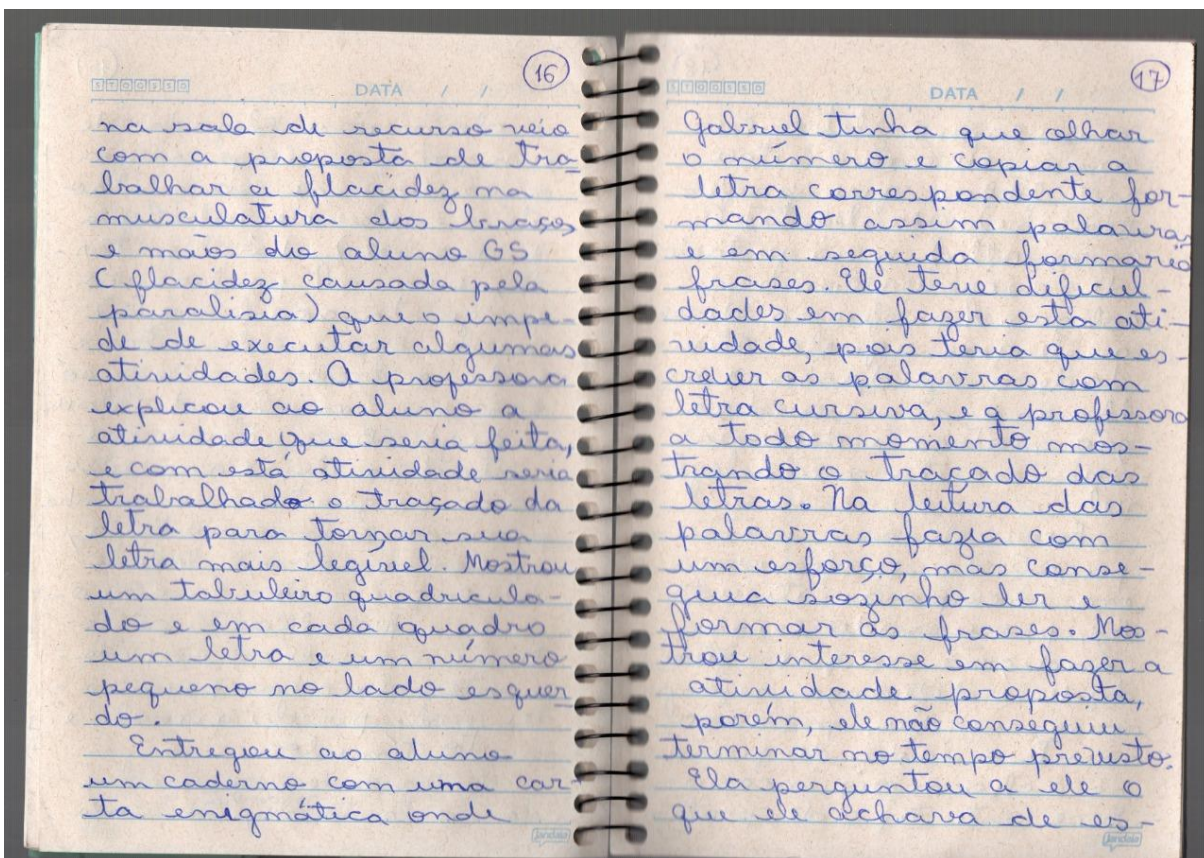 16
STQQSSD
DATA / /
na sala de recurso veio
com a proposta de tra-
balhar a flacidez na
musculatura dos braços
e mãos do aluno GS
(flacidez causada pela
paralisia) que o impe-
de de executar algumas
atividades. A professora
explicou ao aluno a
atividade que seria feita,
e com está atividade seria
trabalhado o traçado da
letra para tornar sua
letra mais legível. Mostrou
um tabuleiro quadricula-
do e em cada quadro
um letra e um número
pequeno no lado esquer-
do.
Entregou ao aluno
um caderno com uma car-
ta enigmática onde
jandaia
17
STQQSSD
DATA / /
Gabriel tinha que olhar
o número e copiar a
letra correspondente for-
mando assim palavras
e em seguida formaria
frases. Ele teve dificul-
dades em fazer esta ati-
vidade, pois teria que es-
crever as palavras com
letra cursiva, e a professora
a todo momento mos-
trando o traçado das
letras. Na leitura das
palavras fazia com
um esforço, mas conse-
guia sozinho ler e
formar as frases. Mos-
trou interesse em fazer a
atividade proposta,
porém, ele não conseguiu
terminar no tempo previsto.
Ela perguntou a ele o
que ele achava de es-
jandaia